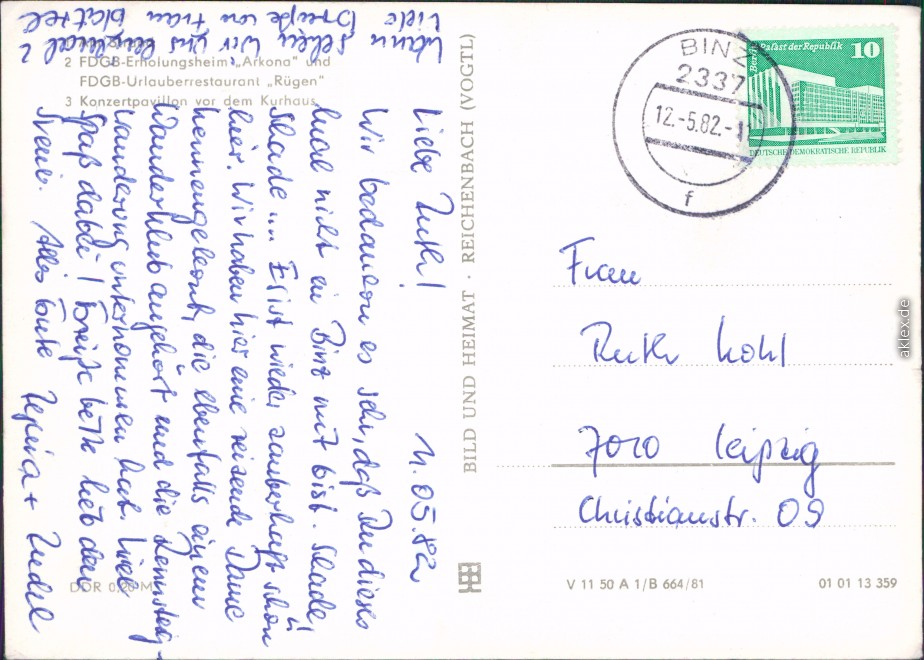 2 FDGB-Erholungsheim „Arkona" und
FDGB-Urlauberrestaurant „Rügen"
3 Konzertpavillon vor dem Kurhaus
11.05.82
Liebe Ruth!
Wir bedauern es sehr, daß Du dieses
mal nicht in Binz mit bist. Schade,
Schade... Es ist wieder zauberhaft schön
hier. Wir haben hier eine reizende Dame
kennengelernt, die ebenfalls einem
Wanderklub angehört und die Rennsteig-
wanderung unternommen hat.
Spaß dabei! Grüße bitte lieb den
Alles Gute
Wann sehen wir uns einmal?
Viele Grüße von Frau
DDR 0,20 M
BILD UND HEIMAT · REICHENBACH (VOGTL)
BINZ
2337
12.-5.82.-1
f
Berlin, Palast der Republik
10
DEUTSCHE DEMOKRATISCHE REPUBLIK
Frau
Ruth Kohl
7010 Leipzig
Christianstr. 09
V 11 50 A 1/B 664/81
01 01 13 359
aklex.de